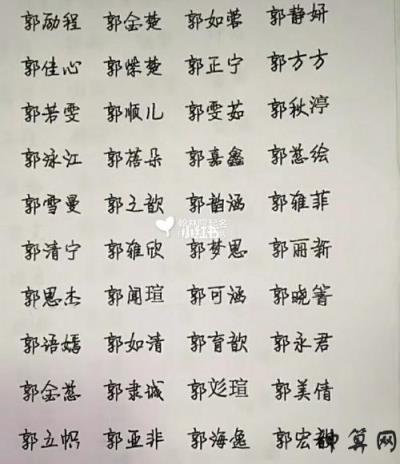 郭励程 郭金楚 郭如蓉 郭静妍
郭佳心 郭燦楚 郭正宁 郭方方
郭若雯 郭顺儿 郭雯茹 郭秋渟
郭泳江 郭蓓朵 郭嘉鑫 郭蕊绘
郭雪曼 郭之歆 郭韵涵 郭雅菲
小红书
郭清宁 郭雅欣 郭梦思 郭丽新
郭思杰 郭闻瑄 郭可涵 郭晓箐
郭语嫣 郭如清 郭育歆 郭永君
郭金蕊 郭隶诚 郭彣瑄 郭美倩
郭立帜 郭亚非 郭海逸 郭宏
神算网